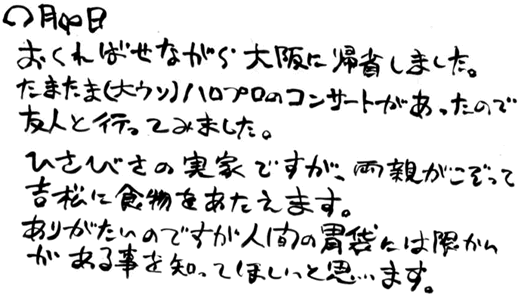 ○月め日
おくればせながら大阪に帰省しました。
たまたま(大ウソ)ハロプロのコンサートがあったので
友人と行ってみました。
ひさびさの実家ですが、両親がこぞって
吉松に食物をあたえます。
ありがたいのですが人間の胃袋には限かい
がある事を知ってほしいと思います。